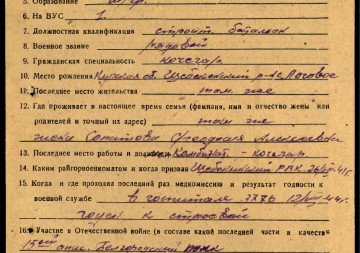 5. Образование
6. На ВУС 1.
7. Должностная квалификация строит. батальон
8. Военное звание рядовой
9. Гражданская специальность кочегар
10. Место рождения Курская об. р-н с. Логовое
11. Последнее место жительства там же
12. Где проживает в настоящее время семья (фамилия, имя и отчество жены или
родителей и точный их адрес) там же
жена Алексеевна
13. Последнее место работы и должн. Комбинат. - кочегар.
14. Каким райгорвоенкоматом и когда призван РВК
15. Когда и где проходил последний раз медкомиссию и результат годности к
военной службе в госпитале 3776
годен к строевой
16. Участие в Отечественной войне (в составе какой последней части в качестве
15 Белгородский